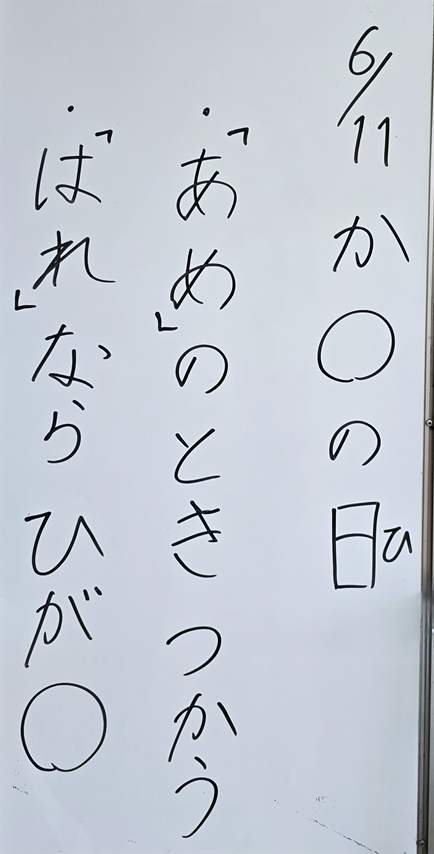 6/11 か〇の日ひ
・「あめ」のとき つかう
・「はれ」なら ひが〇